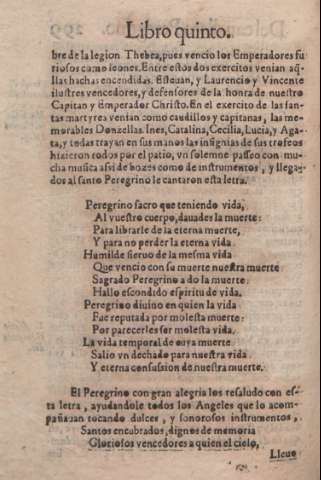 Libro quinto.
bre de la legion Thebea, pues vencio los Emperadores fu
riosos como leones. Entre estos dos exercitos venian aq̃-
llas hachas encendidas. Esteuan, y Laurencio y Vincente
ilustres vencedores, y defensores de la honra de nuestro
Capitan y Emperador Christo. En el exercito de las san-
tas martyres venian como caudillos y capitanas, las me-
morables Donzellas. Ines, Catalina, Cecilia, Lucia, y Aga-
ta, y todas trayan en sus manos las insignias de sus trofeos
hizieron todos por el patio, vn solemne passeo con mu-
cha musica assi de bozes como de instrumentos, y llega-
dos al santo Peregrino le cantaron esta letra.
Peregrino sacro que teniendo vida,
Al vuestro cuerpo, dauades la muerte:
Para librarle de la eterna muerte,
Y para no perder la eterna vida.
Humilde sieruo de la mesma vida
Que vencio con su muerte nuestra muerte
Sagrado Peregrino a do la muerte:
Hallo escondido espiritu de vida.
Peregrino diuino en quien la vida
Fue reputada por molesta muerte:
Por parecerles ser molesta vida.
La vida temporal de cuya muerte
Salio vn dechado para nuestra vida
Y eterna confusion de nuestra muerte.
El Peregrino con gran alegria los resaludo con es-
ta letra, ayudandole todos los Angeles que lo acom-
pañauan tocando dulces, y sonorosos instrumentos,
Santos encubrados, dignos de memoria
Gloriosos vencedores a quien el cielo,
Lleuo